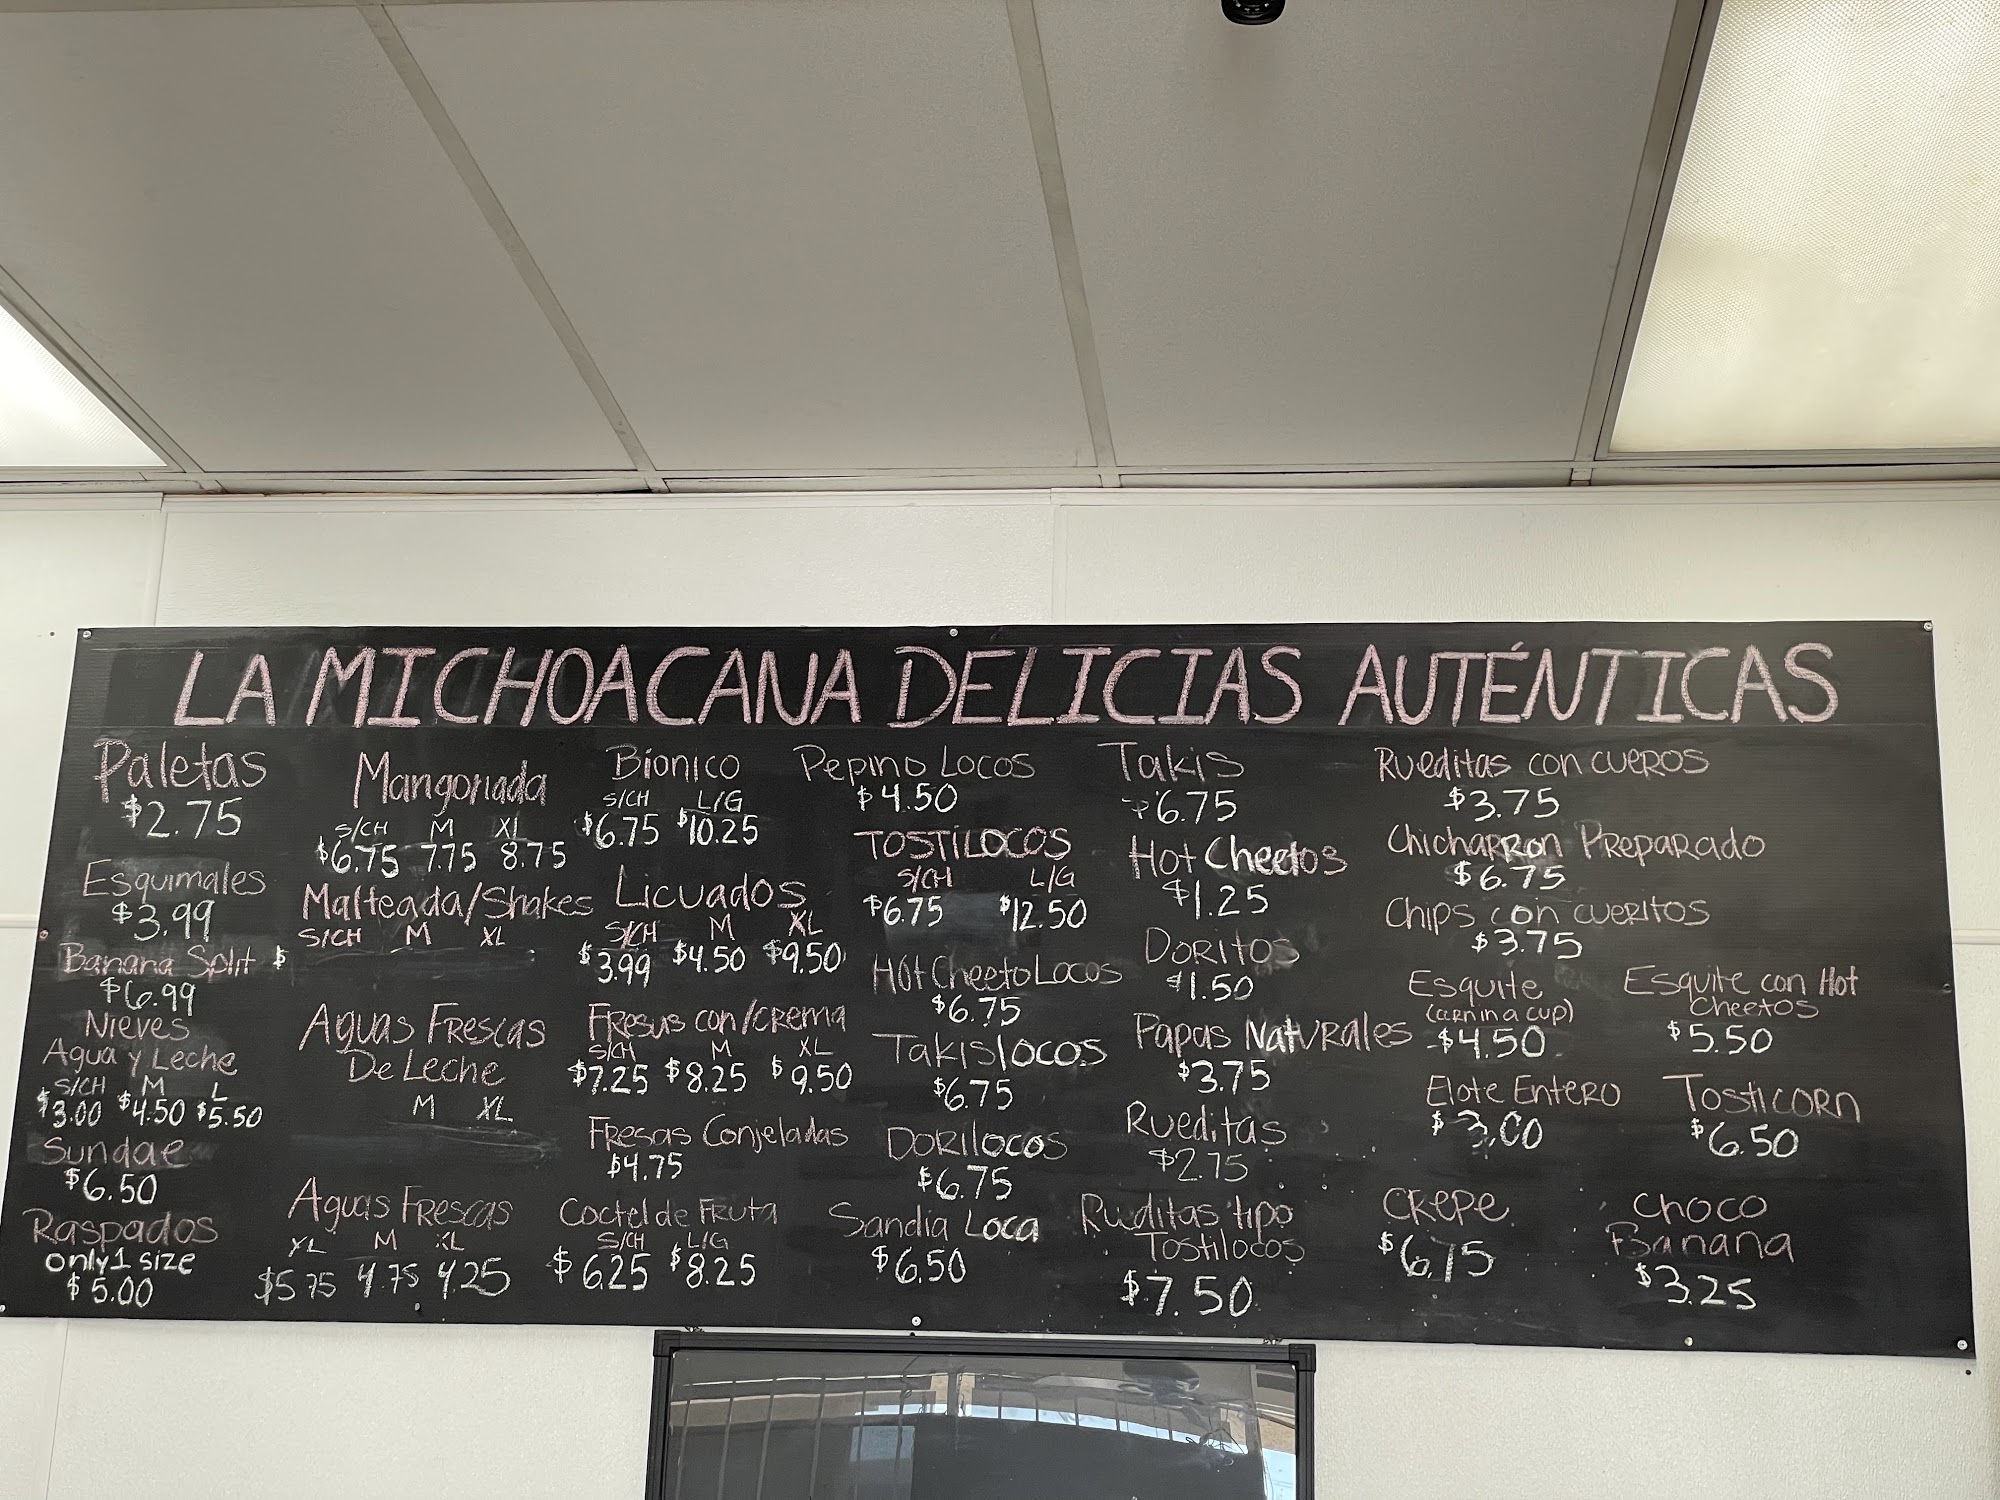 LA MICHOACANA DELICIAS AUTÉNTICAS
Paletas
$2.75
Esquimales
$3.99
Banana Split $
$6.99
Nieves
Agua y Leche
S/CH M L
$3.00 $4.50 $5.50
Sundae
$6.50
Raspados
only 1 size
$5.00
Mangoniada
S/CH M XL
$6.75 7.75 8.75
Malteada/Shakes
S/CH M XL
Aguas Frescas
De Leche
M XL
Aguas Frescas
XL M XL
$5.75 4.75 4.25
Bionico
S/CH L/G
$6.75 $10.25
Licuados
S/CH M XL
$3.99 $4.50 $9.50
Fresus con/crema
S/CH M XL
$7.25 $8.25 $9.50
Fresas Conjeladas
$4.75
Coctel de Fruta
S/CH L/G
$6.25 $8.25
Pepino Locos
$4.50
TOSTILOCOS
S/CH L/G
$6.75 $12.50
Hot Cheeto Locos
$6.75
Takislocos
$6.75
Dorilocos
$6.75
Sandia Loca
$6.50
Takis
$6.75
Hot Cheetos
$1.25
Doritos
$1.50
Papas Naturales
$3.75
Rueditas
$2.75
Rueditas tipo
Tostilocos
$7.50
Rueditas con cueros
$3.75
Chicharron Preparado
$6.75
Chips con cueritos
$3.75
Esquite
(corn in a cup)
$4.50
Elote Entero
$3.00
Crepe
$6.75
Esquite con Hot
Cheetos
$5.50
Tosticorn
$6.50
Choco
Banana
$3.25